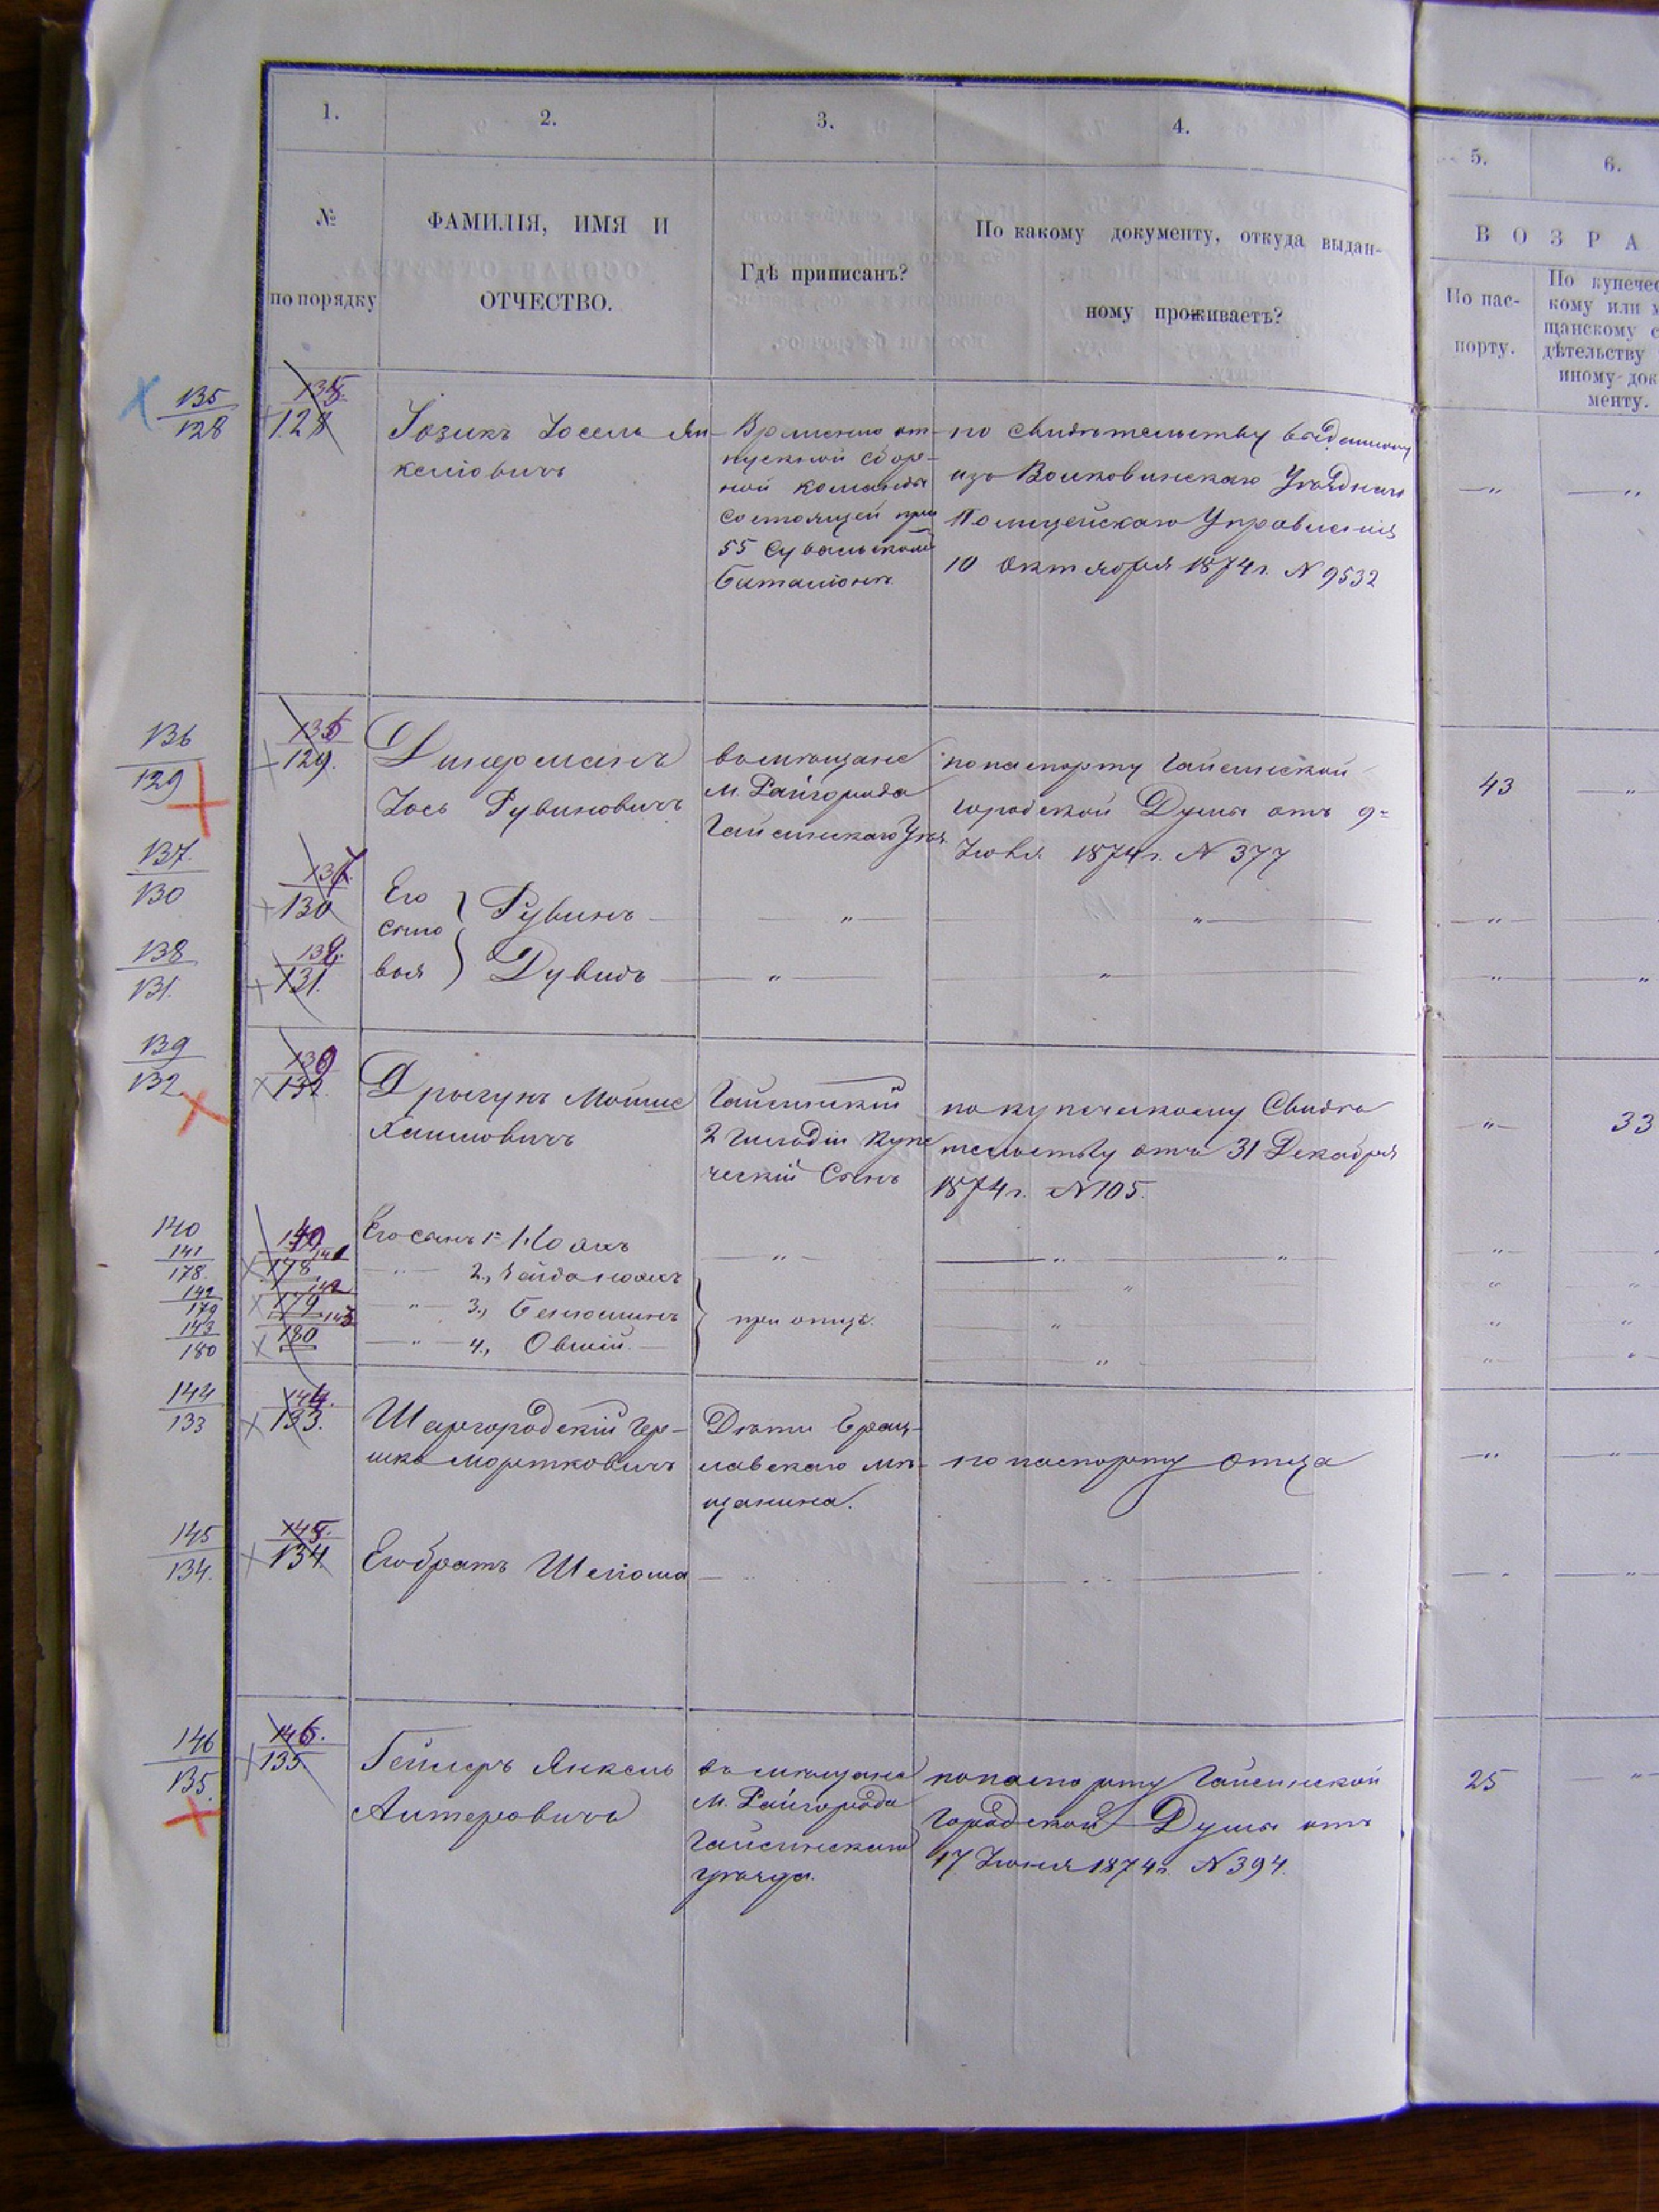 1. 2. 3. 4. 5. 6.
№ по порядку
ФАМИЛІЯ, ИМЯ И
ОТЧЕСТВО.
Гдѣ приписанъ?
По какому документу, откуда выдан-
ному проживаетъ?
В О З Р А
По пас-
порту.
По купечес
кому или м
щанскому с
дѣтельству
иному док
менту.
135
128
135.
128
Іозикъ Іосель Ян-
келіовичъ
Временно от-
пускной сбор-
ной команды
состоящей при
55 Сувальскомъ
Баталіонѣ
по свидѣтельству выданному
изъ Волковинскаго Уѣзднаго
Полицейскаго Управленія
10 Октября 1874 г. № 9532
136
129
136
129.
Динерманъ
Іось Рувиновичъ
въ мѣщане
м. Райгорода
Гайсинскаго Уѣз.
по паспорту Гайсинской
городской Думы отъ 9=
1874 г. № 377
43
137.
130
137.
130
Его
сыно
вья
Рувинъ
138
131.
138.
131.
Дувидъ
139
132
139
132.
Дрыгунъ Мошке
Хаимовичъ
Гайсинскій
2 Гильдіи Купе
ческій Сынъ
по купеческому Свидѣ
тельству отъ 31 Декабря
1874 г. № 105.
33
140
140
Его сынъ 1=
141
178.
141
178
2.,
142
179
142
179
3., Беніоминъ
при отцѣ.
143
180
143
180
4., Овшій.
144
133
144.
133.
Шаргородскій Гер-
шко Мортковичъ
Дѣти Брац-
лавскаго мѣ-
щанина.
по паспорту отца
145
134.
145.
134.
Его братъ Шліома
146
135.
146.
135.
Геллеръ Янкель
Алтеровичъ
въ мѣщане
м. Райгорода
Гайсинскаго
уѣзда.
по паспорту Гайсинской
Городской Думы отъ
17 Іюня 1874 г. № 394.
25